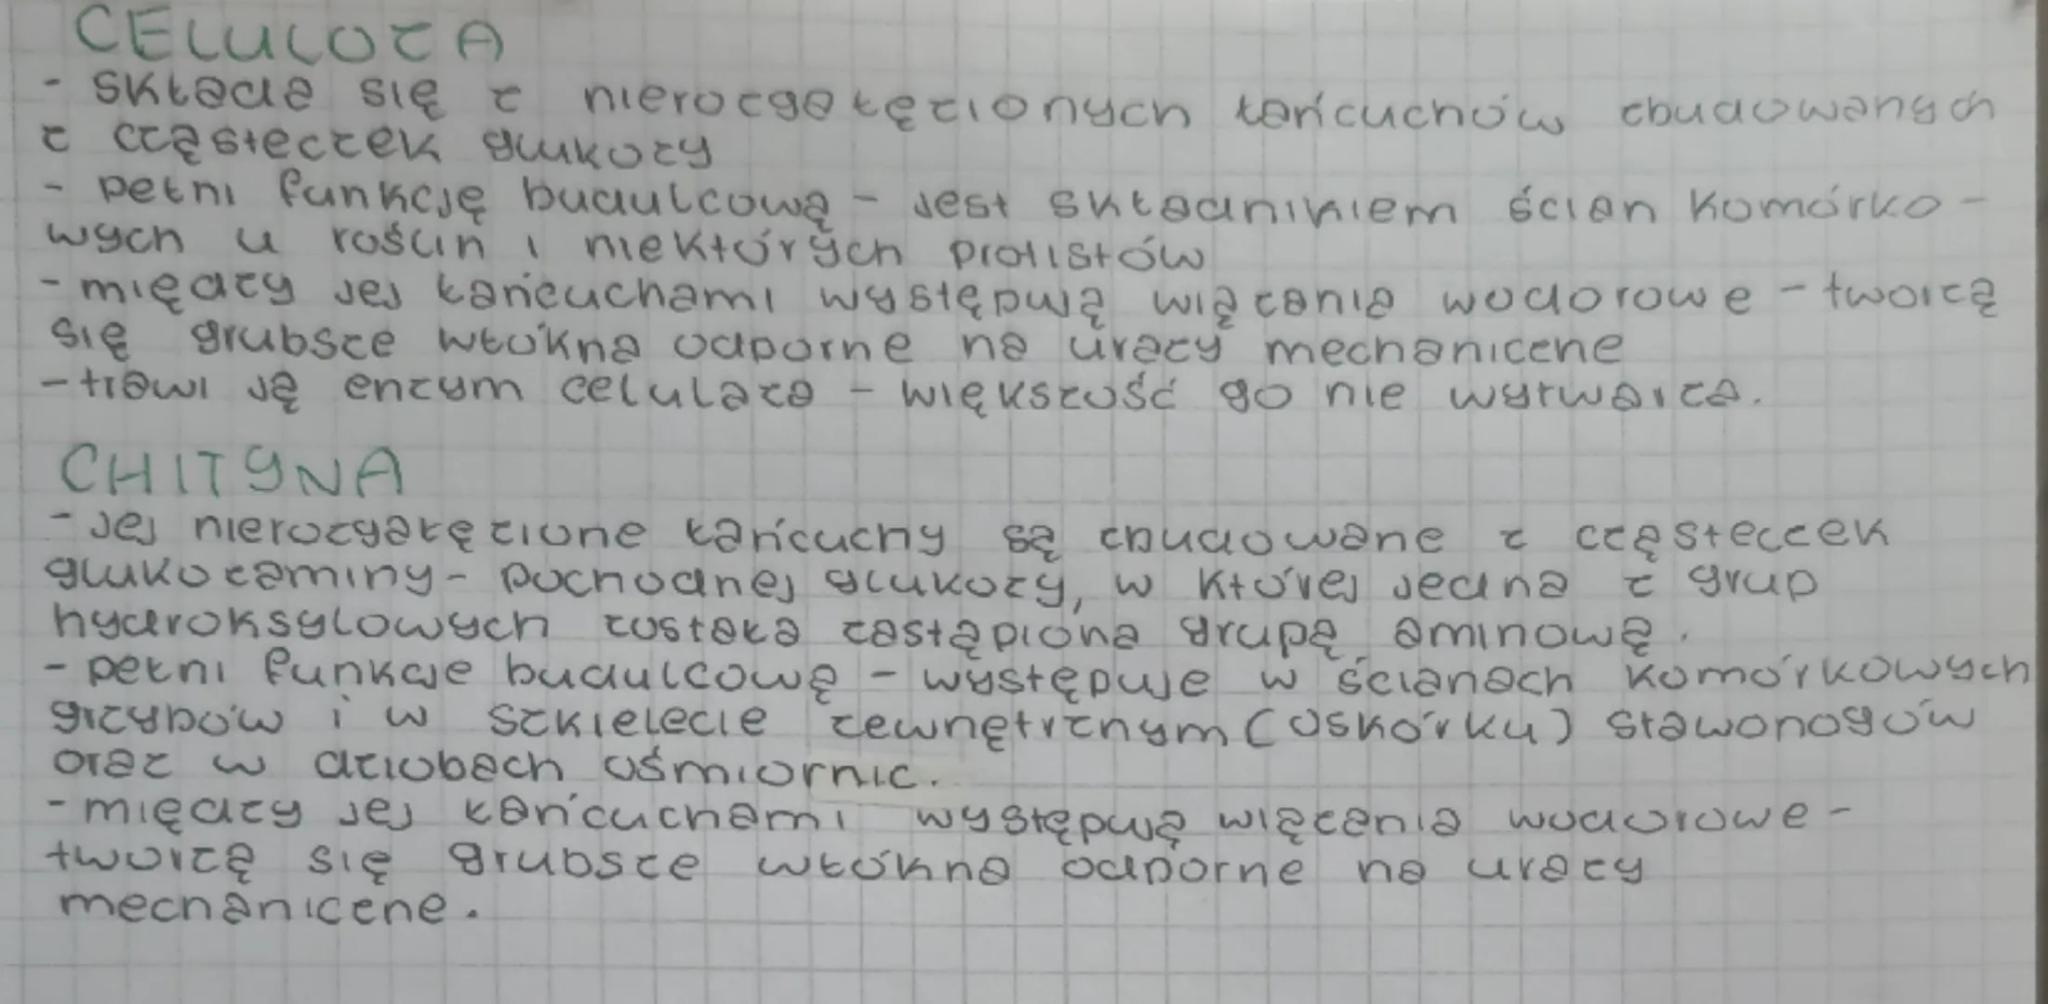 CELULOZA
- składa się z nierozgałęzionych łańcuchów zbudowanych
z cząsteczek glukozy
- pełni funkcję budulcową - jest składnikiem ścian komórko-
wych u roślin i niektórych protistów
- między jej łańcuchami występują wiązania wodorowe - tworzą
się grubsze włókna odporne na urazy mechaniczne
- trawi ją enzym celulaza - większość go nie wytwarza.
CHITYNA
- jej nierozgałęzione łańcuchy są zbudowane z cząsteczek
glukozaminy - pochodnej glukozy, w której jedna z grup
hydroksylowych została zastąpiona grupą aminową.
- pełni funkcje budulcową - występuje w ścianach komórkowych
grzybów i w szkielecie zewnętrznym (oskórku) stawonogów
oraz w dziobach ośmiornic.
- między jej łańcuchami występują wiązania wodorowe -
tworzą się grubsze włókna odporne na urazy
mechaniczne.